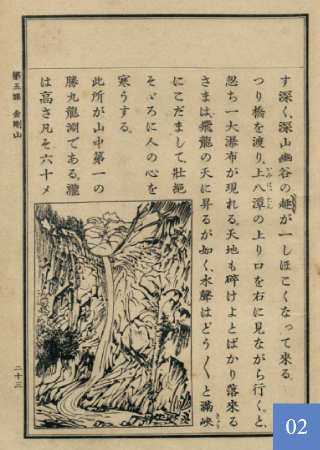 す深く、深山幽谷の趣が一しほこくなって來る。
つり橋を渡り、上八潭の上り口を右に見ながら行くと、
かみはったん
忽ち一大瀑布が現れる。天地も碎けよとばかり落來る
さまは、飛龍の天に昇るが如く、水聲はどう〱と滿峽
にこだまして、壯絕
そゞろに人の心を
寒うする。
此所が山中第一の
勝九龍淵である。瀧
は高さ凡そ六十メ
第五課 金剛山
二十三
02